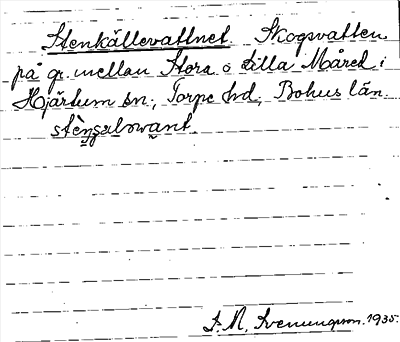 Stenkällevattnet Skogsvatten
på gr. mellan Stora o Lilla Måred i
Hjärtum sn., Torpe hd, Bohus län.
S. M. Svenungson. 1935.